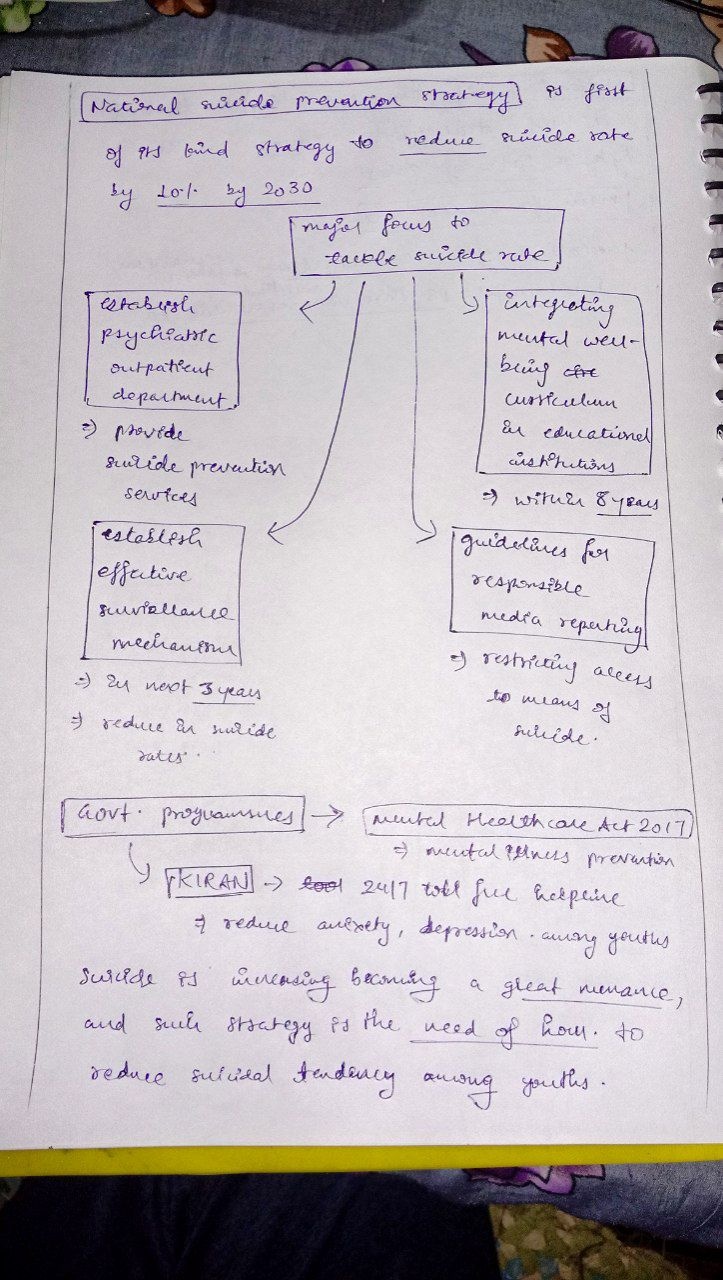 National suicide prevention strategy is first
of its kind strategy to reduce suicide rate
by 10% by 2030
major focus to
tackle suicide rate
establish
psychiatric
outpatient
department
⇒ provide
suicide prevention
services
integrating
mental well-
being
curriculum
in educational
institutions
⇒ within 8 years
establish
effective
surviellance
mechanism
⇒ in next 3 years
⇒ reduce in suicide
rates.
guidelines for
responsible
media reporting
⇒ restricting access
to means of
suicide.
Govt. programmes → Mental Healthcare Act 2017
⇒ mental illness prevention
KIRAN → 24/7 toll free helpline
⇒ reduce anxiety, depression. among youths
Suicide is increasing becoming a great menance,
and such strategy is the need of hour. to
reduce suicidal tendency among youths.